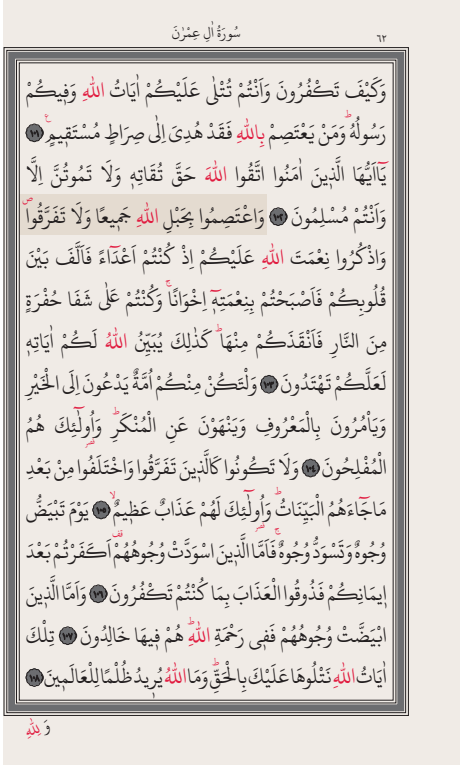 سُورَةُ اٰلِ عِمْرٰنَ ٦٢
وَكَيْفَ تَكْفُرُونَ وَاَنْتُمْ تُتْلٰى عَلَيْكُمْ اٰيَاتُ اللّٰهِ وَف۪يكُمْ
رَسُولُهُۜ وَمَنْ يَعْتَصِمْ بِاللّٰهِ فَقَدْ هُدِيَ اِلٰى صِرَاطٍ مُسْتَق۪يمٍ۟ ﴿١٠١﴾
يَٓا اَيُّهَا الَّذ۪ينَ اٰمَنُوا اتَّقُوا اللّٰهَ حَقَّ تُقَاتِه۪ وَلَا تَمُوتُنَّ اِلَّا
وَاَنْتُمْ مُسْلِمُونَ ﴿١٠٢﴾ وَاعْتَصِمُوا بِحَبْلِ اللّٰهِ جَم۪يعًا وَلَا تَفَرَّقُواۖ
وَاذْكُرُوا نِعْمَتَ اللّٰهِ عَلَيْكُمْ اِذْ كُنْتُمْ اَعْدَٓاءً فَاَلَّفَ بَيْنَ
قُلُوبِكُمْ فَاَصْبَحْتُمْ بِنِعْمَتِه۪ٓ اِخْوَانًاۚ وَكُنْتُمْ عَلٰى شَفَا حُفْرَةٍ
مِنَ النَّارِ فَاَنْقَذَكُمْ مِنْهَاۜ كَذٰلِكَ يُبَيِّنُ اللّٰهُ لَكُمْ اٰيَاتِه۪
لَعَلَّكُمْ تَهْتَدُونَ ﴿١٠٣﴾ وَلْتَكُنْ مِنْكُمْ اُمَّةٌ يَدْعُونَ اِلَى الْخَيْرِ
وَيَأْمُرُونَ بِالْمَعْرُوفِ وَيَنْهَوْنَ عَنِ الْمُنْكَرِۜ وَاُو۬لٰٓئِكَ هُمُ
الْمُفْلِحُونَ ﴿١٠٤﴾ وَلَا تَكُونُوا كَالَّذ۪ينَ تَفَرَّقُوا وَاخْتَلَفُوا مِنْ بَعْدِ
مَا جَٓاءَهُمُ الْبَيِّنَاتُۜ وَاُو۬لٰٓئِكَ لَهُمْ عَذَابٌ عَظ۪يمٌۙ ﴿١٠٥﴾ يَوْمَ تَبْيَضُّ
وُجُوهٌ وَتَسْوَدُّ وُجُوهٌۚ فَاَمَّا الَّذ۪ينَ اسْوَدَّتْ وُجُوهُهُمْ۠ اَكَفَرْتُمْ بَعْدَ
ا۪يمَانِكُمْ فَذُوقُوا الْعَذَابَ بِمَا كُنْتُمْ تَكْفُرُونَ ﴿١٠٦﴾ وَاَمَّا الَّذ۪ينَ
ابْيَضَّتْ وُجُوهُهُمْ فَف۪ي رَحْمَةِ اللّٰهِۜ هُمْ ف۪يهَا خَالِدُونَ ﴿١٠٧﴾ تِلْكَ
اٰيَاتُ اللّٰهِ نَتْلُوهَا عَلَيْكَ بِالْحَقِّۜ وَمَا اللّٰهُ يُر۪يدُ ظُلْمًا لِلْعَالَم۪ينَ ﴿١٠٨﴾
وَلِلّٰهِ